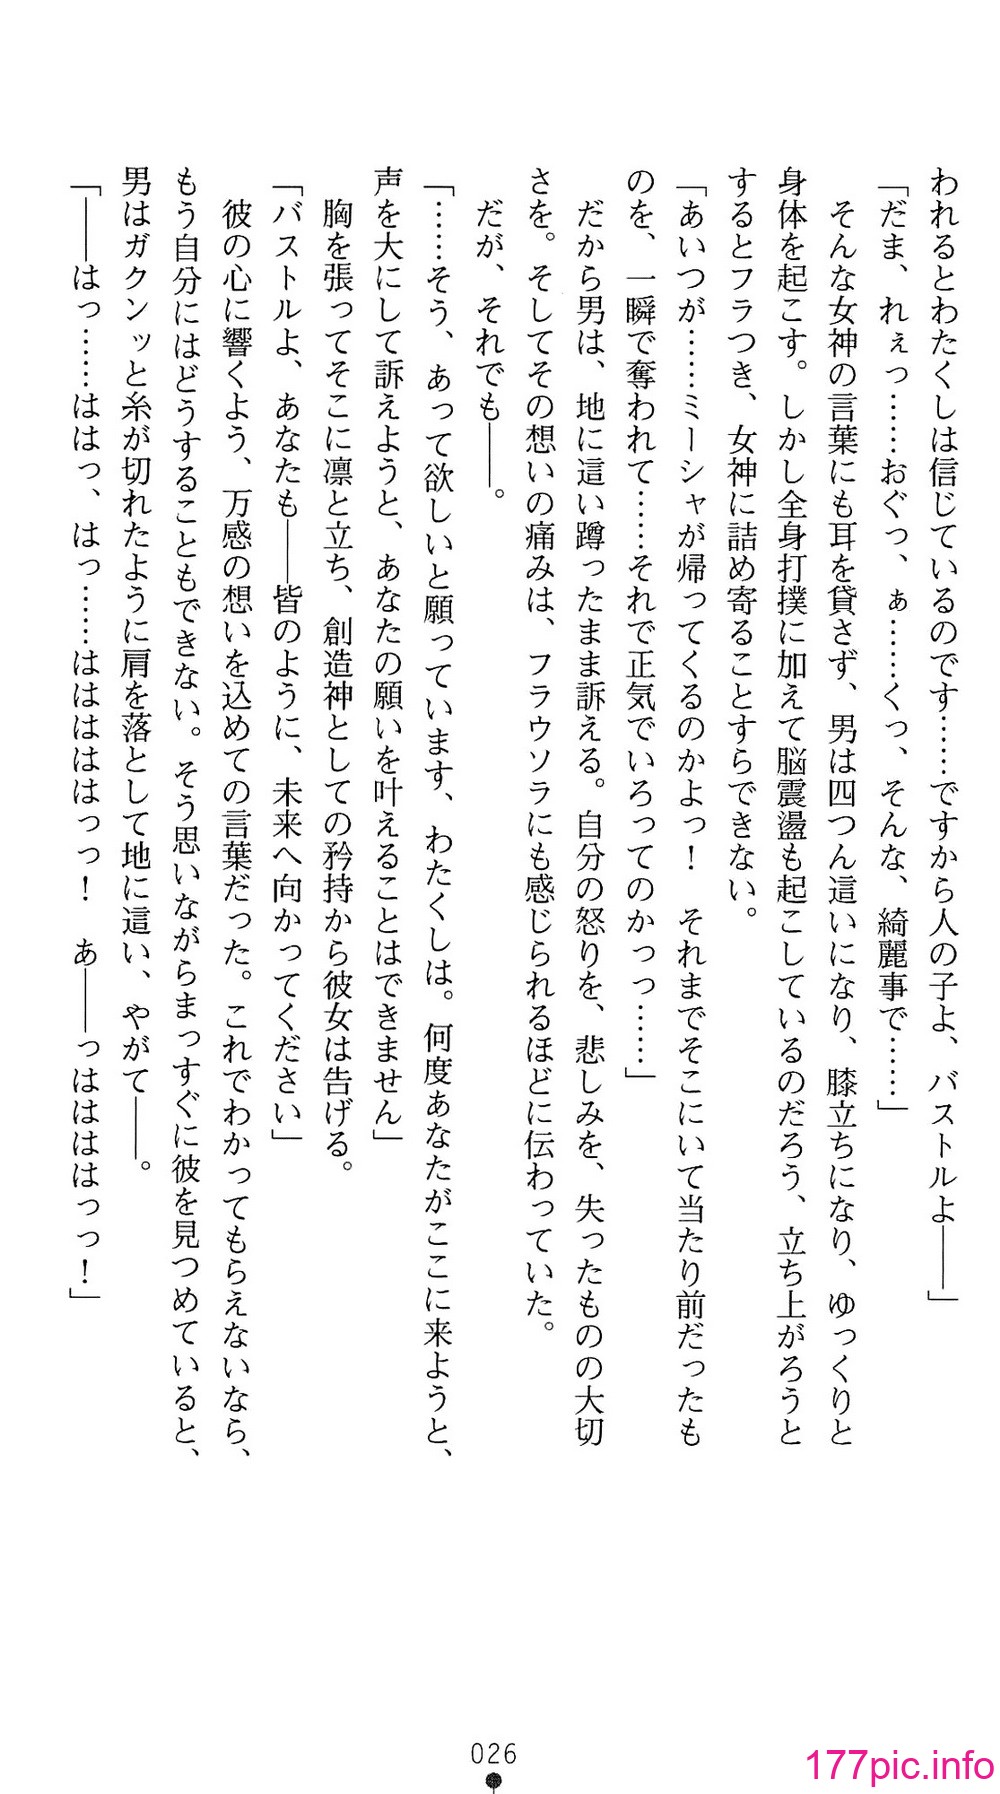 われるとわたくしは信じているのです……ですから人の子よ、バストルよ――」
「だま、れぇっ……おぐっ、ぁ……くっ、そんな、綺麗事で……」
　そんな女神の言葉にも耳を貸さず、男は四つん這いになり、膝立ちになり、ゆっくりと
身体を起こす。しかし全身打撲に加えて脳震盪も起こしているのだろう、立ち上がろうと
するとフラつき、女神に詰め寄ることすらできない。
「あいつが……ミーシャが帰ってくるのかよっ！　それまでそこにいて当たり前だったも
のを、一瞬で奪われて……それで正気でいろってのかっっ……」
　だから男は、地に這い蹲ったまま訴える。自分の怒りを、悲しみを、失ったものの大切
さを。そしてその想いの痛みは、フラウソラにも感じられるほどに伝わっていた。
　だが、それでも――。
「……そう、あって欲しいと願っています、わたくしは。何度あなたがここに来ようと、
声を大にして訴えようと、あなたの願いを叶えることはできません」
　胸を張ってそこに凛と立ち、創造神としての矜持から彼女は告げる。
「バストルよ、あなたも――皆のように、未来へ向かってください」
　彼の心に響くよう、万感の想いを込めての言葉だった。これでわかってもらえないなら、
もう自分にはどうすることもできない。そう思いながらまっすぐに彼を見つめていると、
男はガクンッと糸が切れたように肩を落として地に這い、やがて――。
「――はっ……ははっ、はっ……はははははっっ！　あ――っはははははっっ！」
026
177pic.info